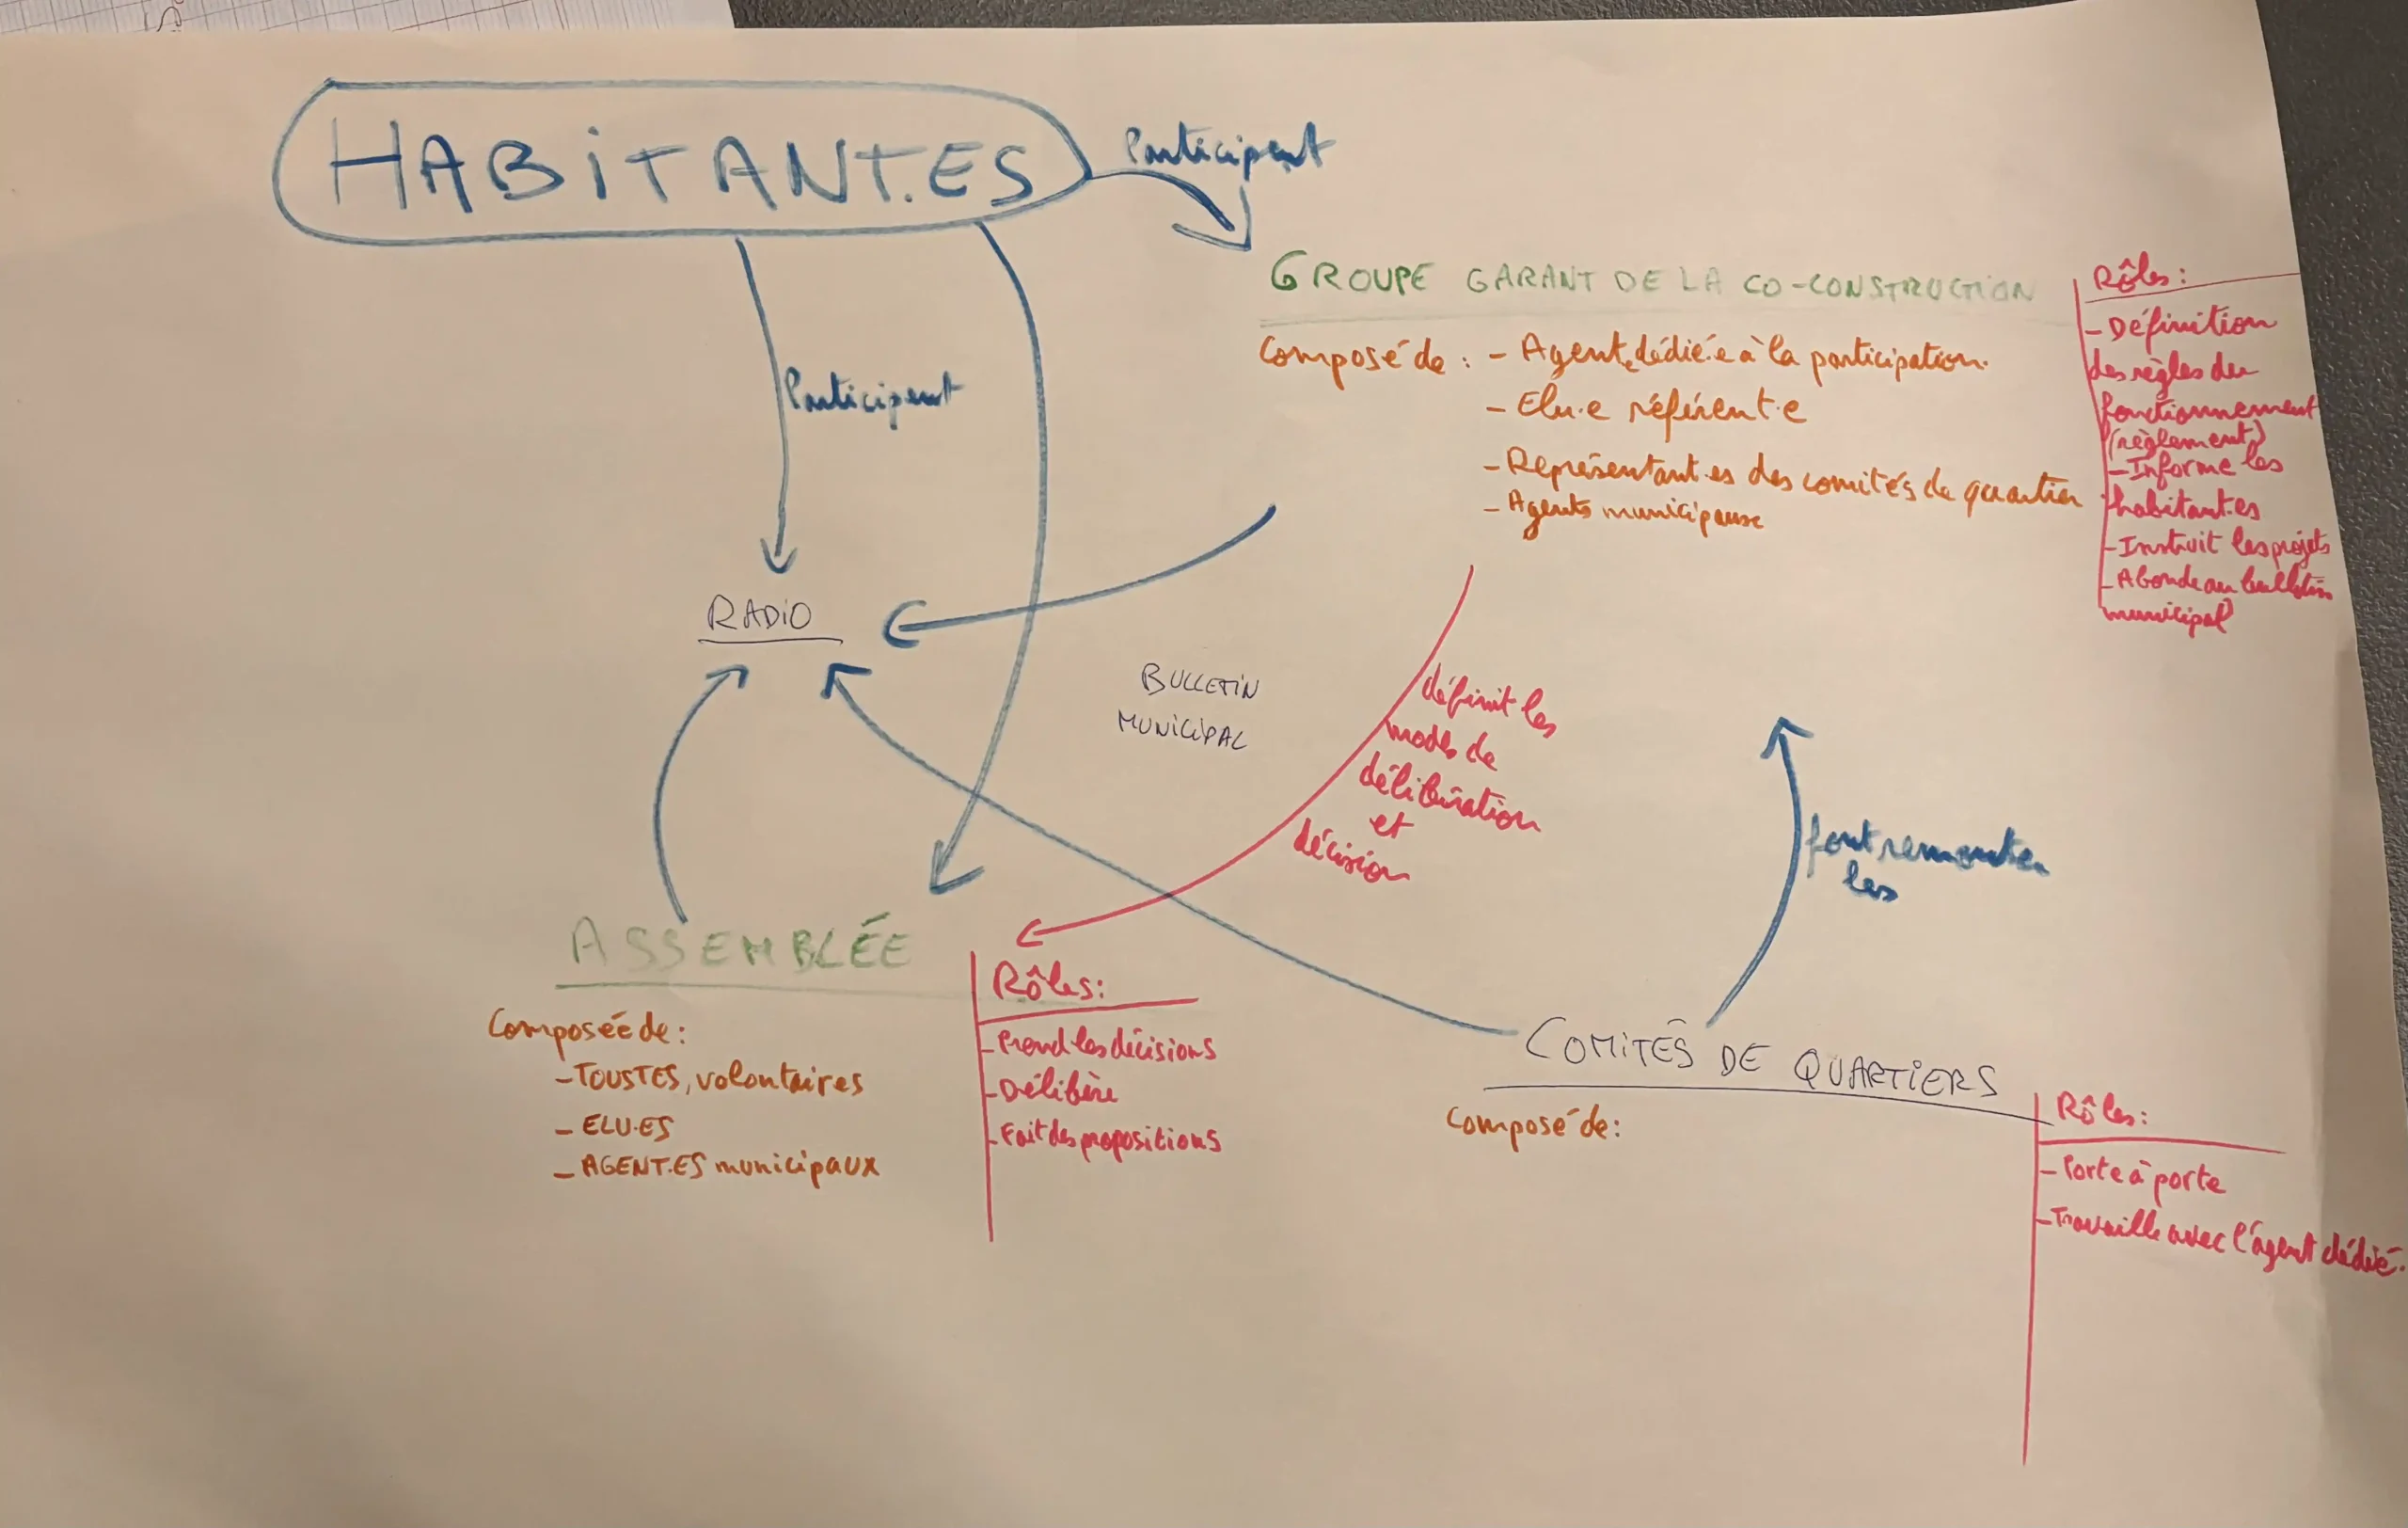 HABITANT.ES
Participent
Participent
GROUPE GARANT DE LA CO-CONSTRUCTION
Composé de : - Agent.e dédié.e à la participation.
- Elu.e référent.e
- Représentant.es des comités de quartier
- Agents municipaux
Rôles :
- Définition
des règles de
fonctionnement
(règlement)
- Informe les
habitant.es
- Instruit les projets
- Abonde au bulletin
municipal
RADIO
BULLETIN
MUNICIPAL
définit les
modes de
délibération
et
décision
font remonter
les
ASSEMBLÉE
Composée de :
- TOUSTES, volontaires
- ELU.ES
- AGENT.ES municipaux
Rôles :
- Prend les décisions
- Délibère
- Fait des propositions
COMITÉS DE QUARTIERS
Composé de :
Rôles :
- Porte à porte
- Travaille avec l'agent dédié.